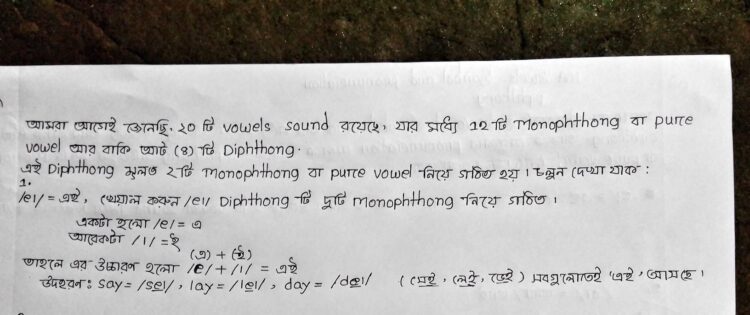 আমরা আগেই জেনেছি, ২০ টি vowels sound রয়েছে, যার মধ্যে 12 টি Monophthong বা pure
vowel আর বাকি আট (৪) টি Diphthong.
এই Diphthong মূলত ২টি Monophthong বা pure vowel নিয়ে গঠিত হয়। চলুন দেখা যাক :
1.
/eɪ/ = এই, খেয়াল করুন /eɪ/ Diphthong টি দুটি monophthong নিয়ে গঠিত।
একটা হলো /e/ = এ
আরেকটা /ɪ/ = ই
(এ) + (ই)
তাহলে এর উচ্চারণ হলো /e/ + /ɪ/ = এই
উদহরন : say = /seɪ/, lay = /leɪ/, day = /deɪ/ (সেই, লেই, ডেই) সবগুলোতেই 'এই' আসছে।